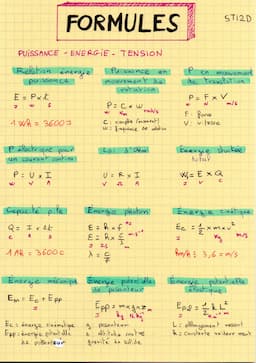 FORMULES
STI2D
PUISSANCE - ENERGIE - TENSION
Relation énergie puissance
E = P x t
J W s
1 Wh = 3600 J
Puissance en mouvement de rotation
P = C x W
W Nm rad/s
C : couple (moment)
P en mouvement de translation
P = F x V
W N m/s
F : force
V : vitesse
P électrique pour un courant continu
P = U x I
W V A
Loi d'Ohm
U = R x I
V Ω A
Energie stockée
total
= E x Q
Capacité pile
Q = I x t
C A s
1 Ah = 3600 C
Energie photon
E = h x f
E = h x c/λ
λ = c/f
Energie cinétique
Ec = 1/2 x m x v²
J kg m/s
km/h : 3,6 = m/s
Energie mécanique
Em = Ec + Epp
Ec : énergie cinétique
Epp : énergie potentielle de pesanteur
Energie potentielle de pesanteur
Epp = m x g x z
g : pesanteur
z : altitude centre gravité du solide
Energie potentielle élastique
Epe = 1/2 k L²
L : allongement ressort
k : constante raideur